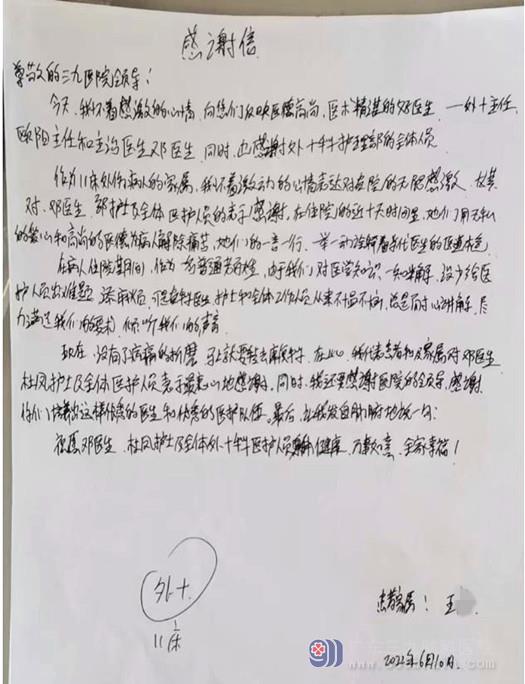 感谢信
尊敬的三九医院领导：
今天，我怀着感激的心情，向您们反映医德高尚，医术精湛的好医生——外十主任
欧阳主任和主治医生邓医生，同时，也感谢外十科护理部的全体人员
作为11床外伤病人的家属，我怀着激动的心情表达对贵院的无限感激，尤其
对邓医生、护士及全体医护人员表示感谢，在住院的近十天时间里，她们用无私
的爱心和高尚的医德为病人解除痛苦，她们的一言一行、一举一动诠释着当代医生的医道本色
在病人住院期间，作为一名普通老百姓，由于我们对医学知识一知半解，没少给医
护人员出难题、添麻烦，可是邓医生、护士和全体工作人员从来不厌不烦，总是耐心讲解，尽
力满足我们的要求，倾听我们的声音
现在，没有了病痛的折磨，马上就要转去康复科，在此，我代表患者和及家属对邓医生
杜凤护士及全体医护人员表示最衷心地感谢，同时，我还要感谢医院的领导，感谢
你们培养出这样优秀的医生和优秀的医护队伍。最后，让我发自肺腑地说一句：
祝愿邓医生、杜凤护士及全体外十科医护人员身体健康，万事如意，全家幸福！
外十
11床
患者家属：王
2022年6月10日